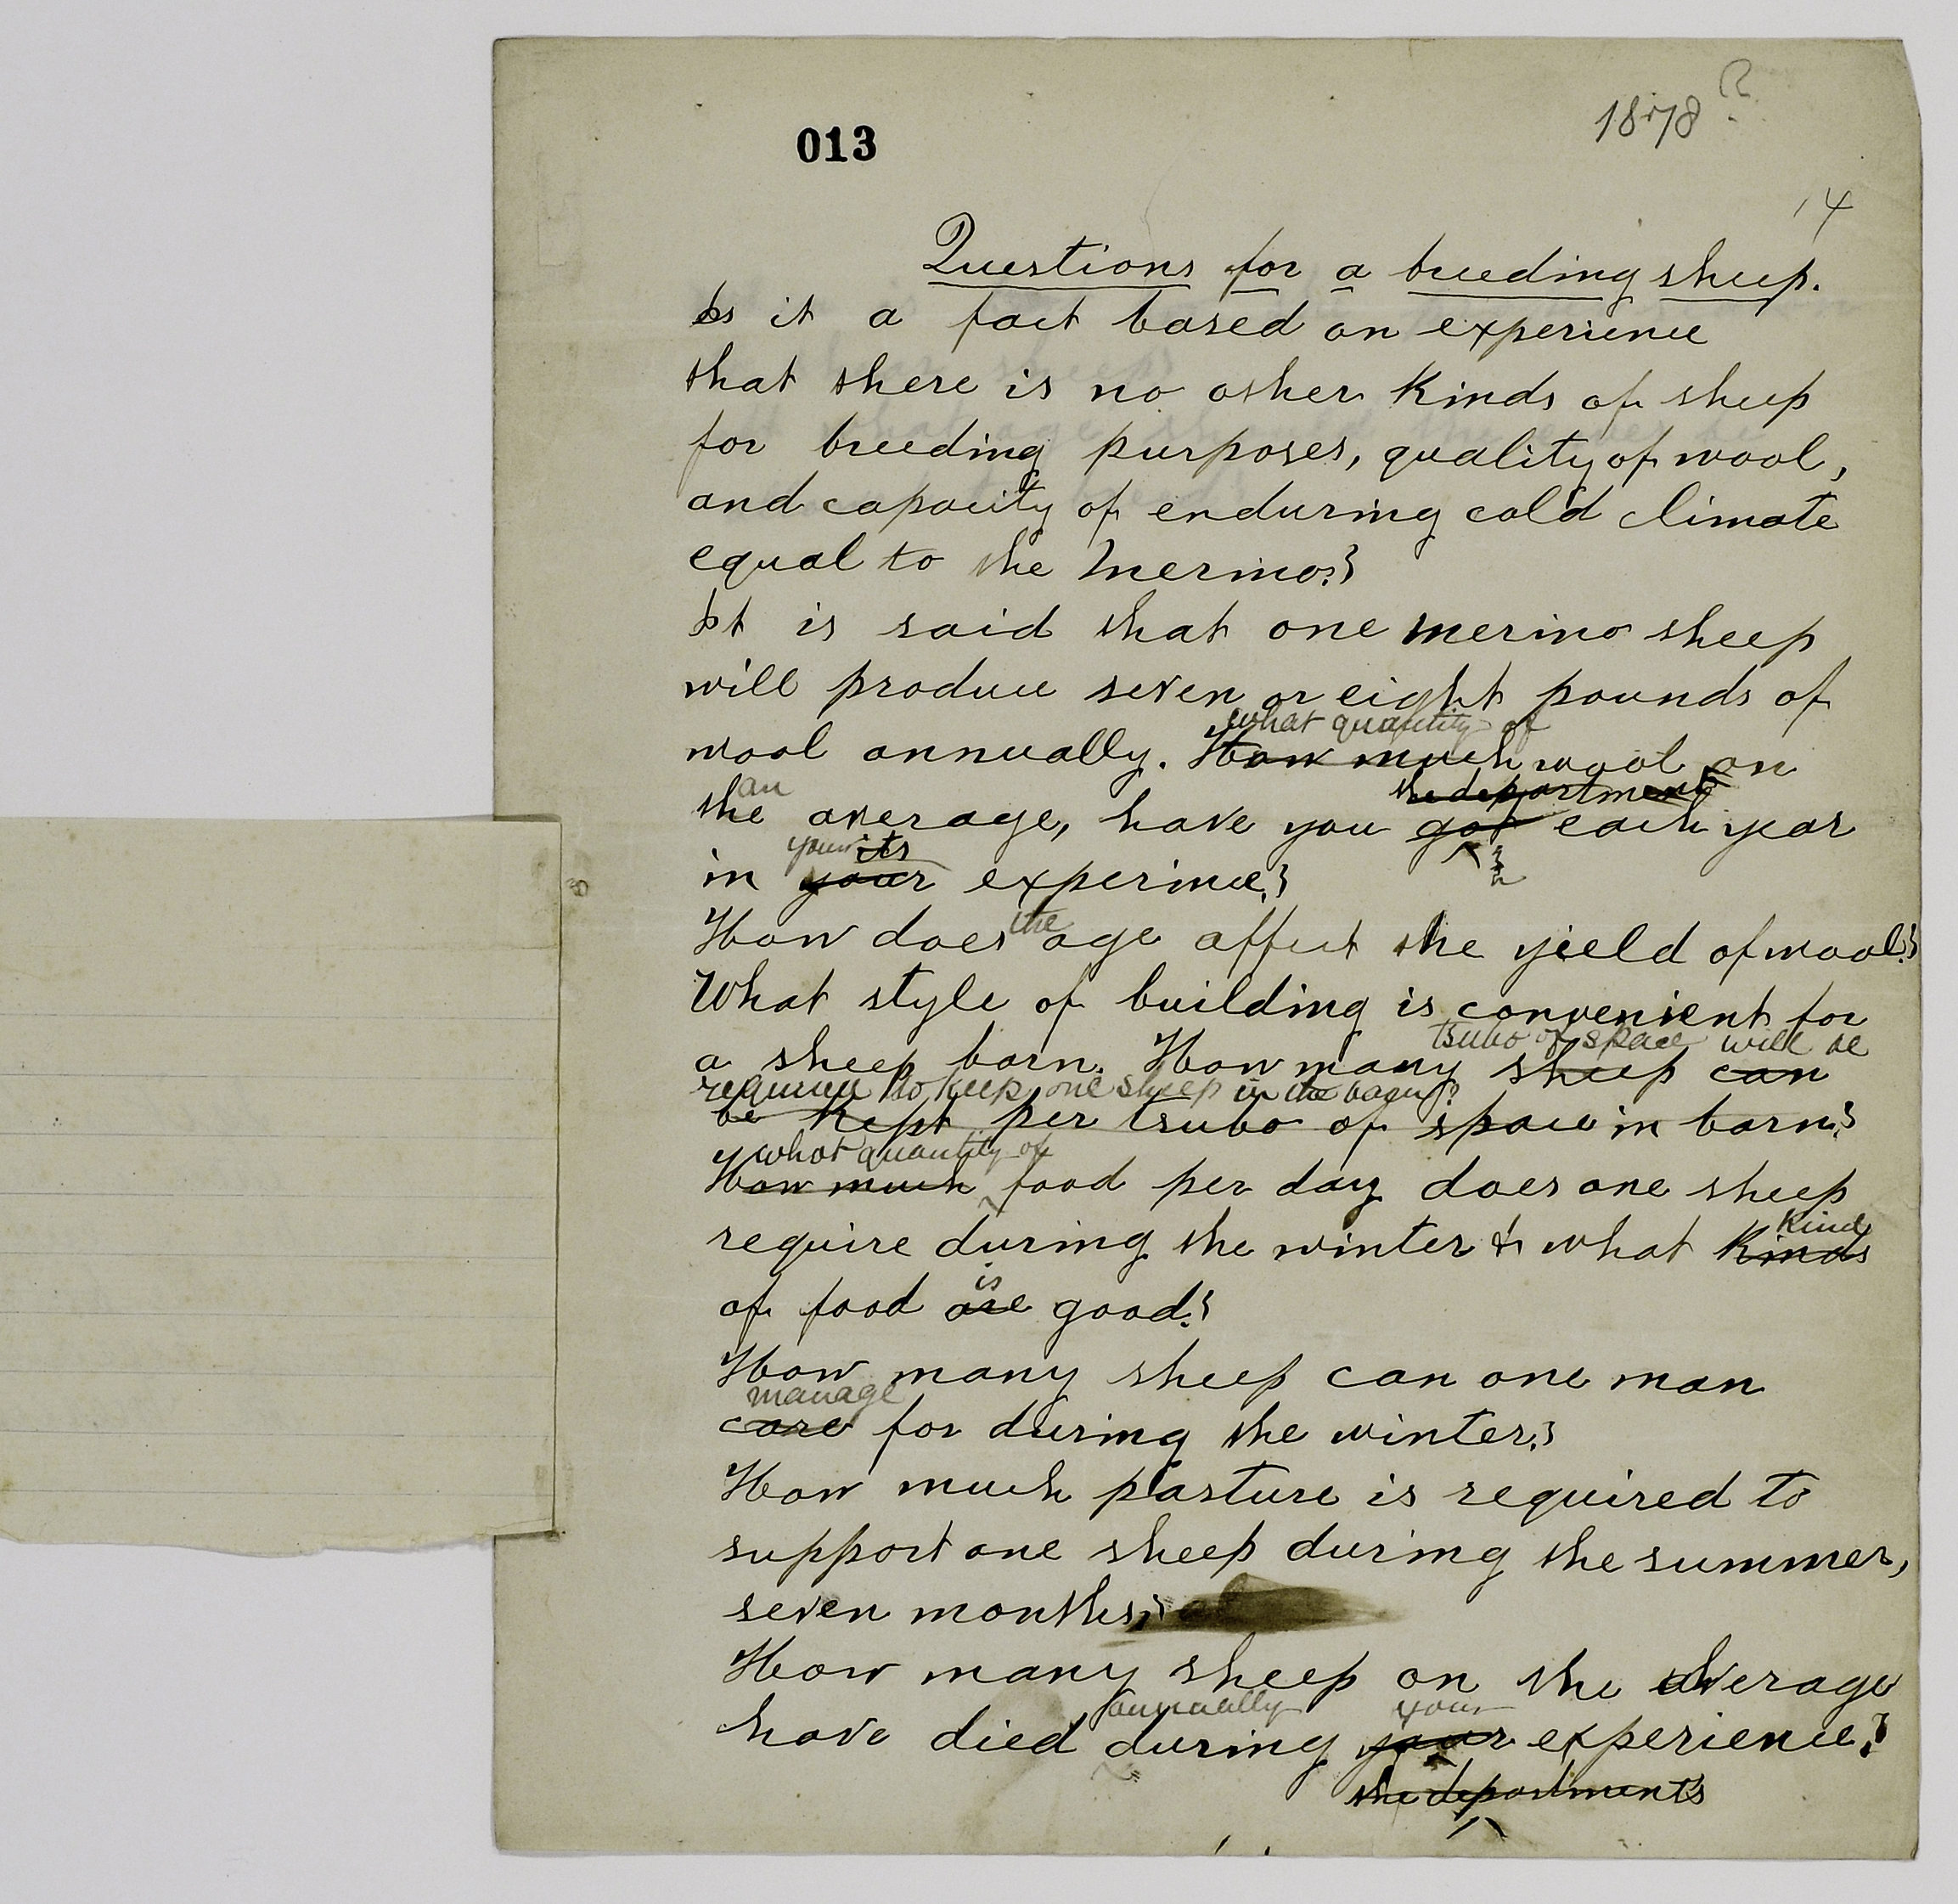 1878?
013
14
Questions for a breeding sheep.
Is it a fact based on experience
that there is no other kinds of sheep
for breeding purposes, quality of wool,
and capacity of enduring cold climate
equal to the Merino?
It is said that one merino sheep
will produce seven or eight pounds of
what quantity of
wool annually. How much wool on
an the department
the average, have you got each year
your its
in your experince?
the
How does age affect the yield of wool?
What style of building is convenient for
tsubo of space will be
a sheep barn. How many sheep can
required to keep one sheep in the barn?
be kept per tsubo of space in barn?
what quantity of
How much food per day does one sheep
kind
require during the winter & what kinds
is
of food are good?
How many sheep can one man
manage
care for during the winter?
How much pasture is required to
support one sheep during the summer,
seven months?
How many sheep on the average
annually your
have died during your experience?
the departments